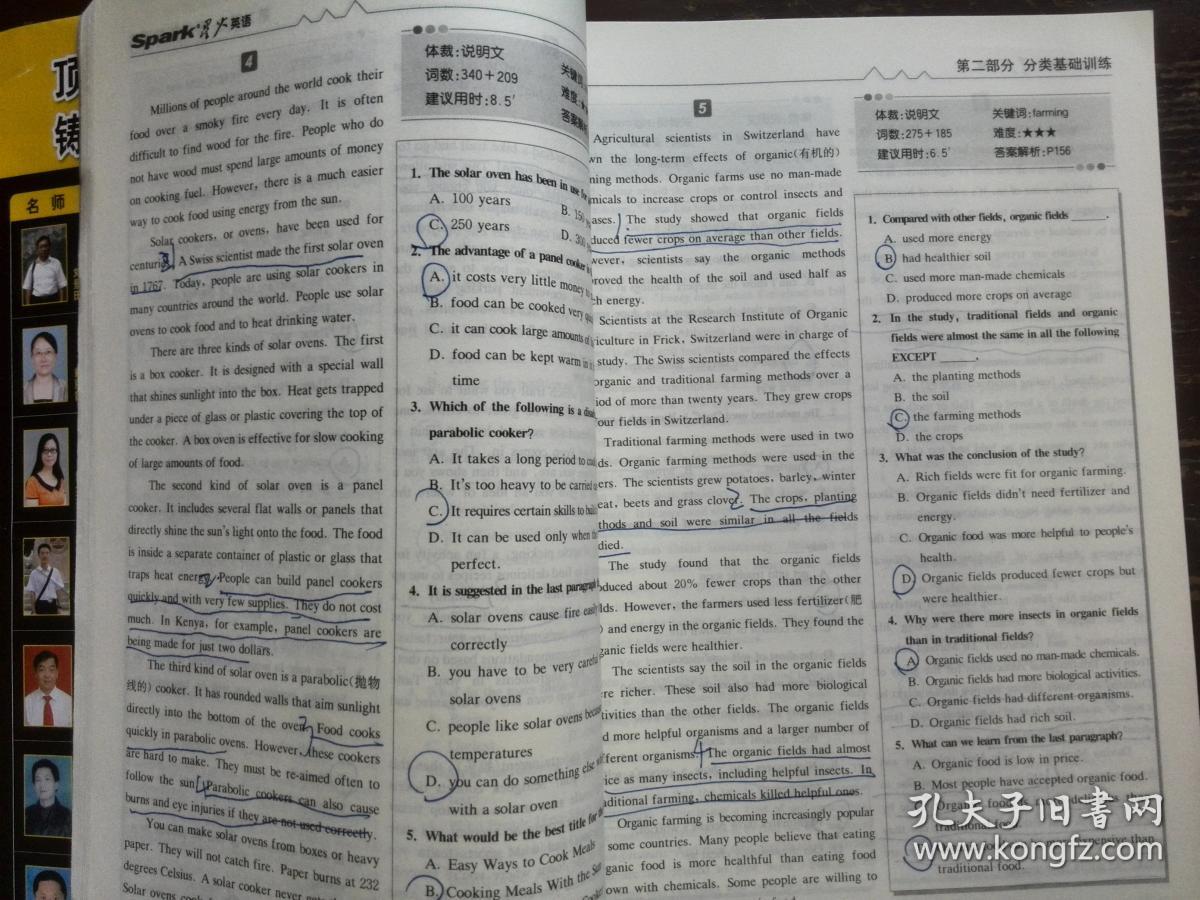 顶
名 师
Spark 星火 英语
4
Millions of people around the world cook their
food over a smoky fire every day. It is often
difficult to find wood for the fire. People who do
not have wood must spend large amounts of money
on cooking fuel. However, there is a much easier
way to cook food using energy from the sun.
Solar cookers, or ovens, have been used for
centuries. A Swiss scientist made the first solar oven
in 1767. Today, people are using solar cookers in
many countries around the world. People use solar
ovens to cook food and to heat drinking water.
There are three kinds of solar ovens. The first
is a box cooker. It is designed with a special wall
that shines sunlight into the box. Heat gets trapped
under a piece of glass or plastic covering the top of
the cooker. A box oven is effective for slow cooking
of large amounts of food.
The second kind of solar oven is a panel
cooker. It includes several flat walls or panels that
directly shine the sun's light onto the food. The food
is inside a separate container of plastic or glass that
traps heat energy. People can build panel cookers
quickly and with very few supplies. They do not cost
much. In Kenya, for example, panel cookers are
being made for just two dollars.
The third kind of solar oven is a parabolic(抛物
线的) cooker. It has rounded walls that aim sunlight
directly into the bottom of the oven. Food cooks
quickly in parabolic ovens. However, these cookers
are hard to make. They must be re-aimed often to
follow the sun. Parabolic cookers can also cause
burns and eye injuries if they are not used correctly.
You can make solar ovens from boxes or heavy
paper. They will not catch fire. Paper burns at 232
degrees Celsius. A solar cooker never
Solar ovens
体裁:说明文
词数:340+209
建议用时:8.5′
关键词
难度:★
答案解析
1. The solar oven has been in use for
A. 100 years
B. 150
C. 250 years
D. 300
2. The advantage of a panel cooker is
A. it costs very little money
B. food can be cooked very
C. it can cook large amounts of
D. food can be kept warm in
time
3. Which of the following is a
parabolic cooker?
A. It takes a long period to
B. It's too heavy to be carried
C. It requires certain skills to
D. It can be used only when
perfect.
4. It is suggested in the last paragraph
A. solar ovens cause fire
correctly
B. you have to be very
solar ovens
C. people like solar ovens
temperatures
D. you can do something else
with a solar oven
5. What would be the best title for
A. Easy Ways to Cook Meals
B. Cooking Meals With the
第二部分 分类基础训练
5
Agricultural scientists in Switzerland have
wn the long-term effects of organic(有机的)
ning methods. Organic farms use no man-made
micals to increase crops or control insects and
ases. The study showed that organic fields
duced fewer crops on average than other fields.
wever, scientists say the organic methods
roved the health of the soil and used half as
ch energy.
Scientists at the Research Institute of Organic
riculture in Frick, Switzerland were in charge of
study. The Swiss scientists compared the effects
organic and traditional farming methods over a
iod of more than twenty years. They grew crops
our fields in Switzerland.
Traditional farming methods were used in two
ds. Organic farming methods were used in the
ers. The scientists grew potatoes, barley, winter
eat, beets and grass clover. The crops, planting
thods and soil were similar in all the fields
died.
The study found that the organic fields
oduced about 20% fewer crops than the other
lds. However, the farmers used less fertilizer(肥
) and energy in the organic fields. They found the
ganic fields were healthier.
The scientists say the soil in the organic fields
re richer. These soil also had more biological
tivities than the other fields. The organic fields
d more helpful organisms and a larger number of
fferent organisms. The organic fields had almost
ice as many insects, including helpful insects. In
aditional farming, chemicals killed helpful ones.
Organic farming is becoming increasingly popular
some countries. Many people believe that eating
ganic food is more healthful than eating food
own with chemicals. Some people are willing to
体裁:说明文 关键词:farming
词数:275+185 难度:★★★
建议用时:6.5′ 答案解析:P156
1. Compared with other fields, organic fields ______.
A. used more energy
B. had healthier soil
C. used more man-made chemicals
D. produced more crops on average
2. In the study, traditional fields and organic
fields were almost the same in all the following
EXCEPT ______.
A. the planting methods
B. the soil
C. the farming methods
D. the crops
3. What was the conclusion of the study?
A. Rich fields were fit for organic farming.
B. Organic fields didn't need fertilizer and
energy.
C. Organic food was more helpful to people's
health.
D. Organic fields produced fewer crops but
were healthier.
4. Why were there more insects in organic fields
than in traditional fields?
A. Organic fields used no man-made chemicals.
B. Organic fields had more biological activities.
C. Organic fields had different organisms.
D. Organic fields had rich soil.
5. What can we learn from the last paragraph?
A. Organic food is low in price.
B. Most people have accepted organic food.
traditional food.
孔夫子旧书网
www.kongfz.com